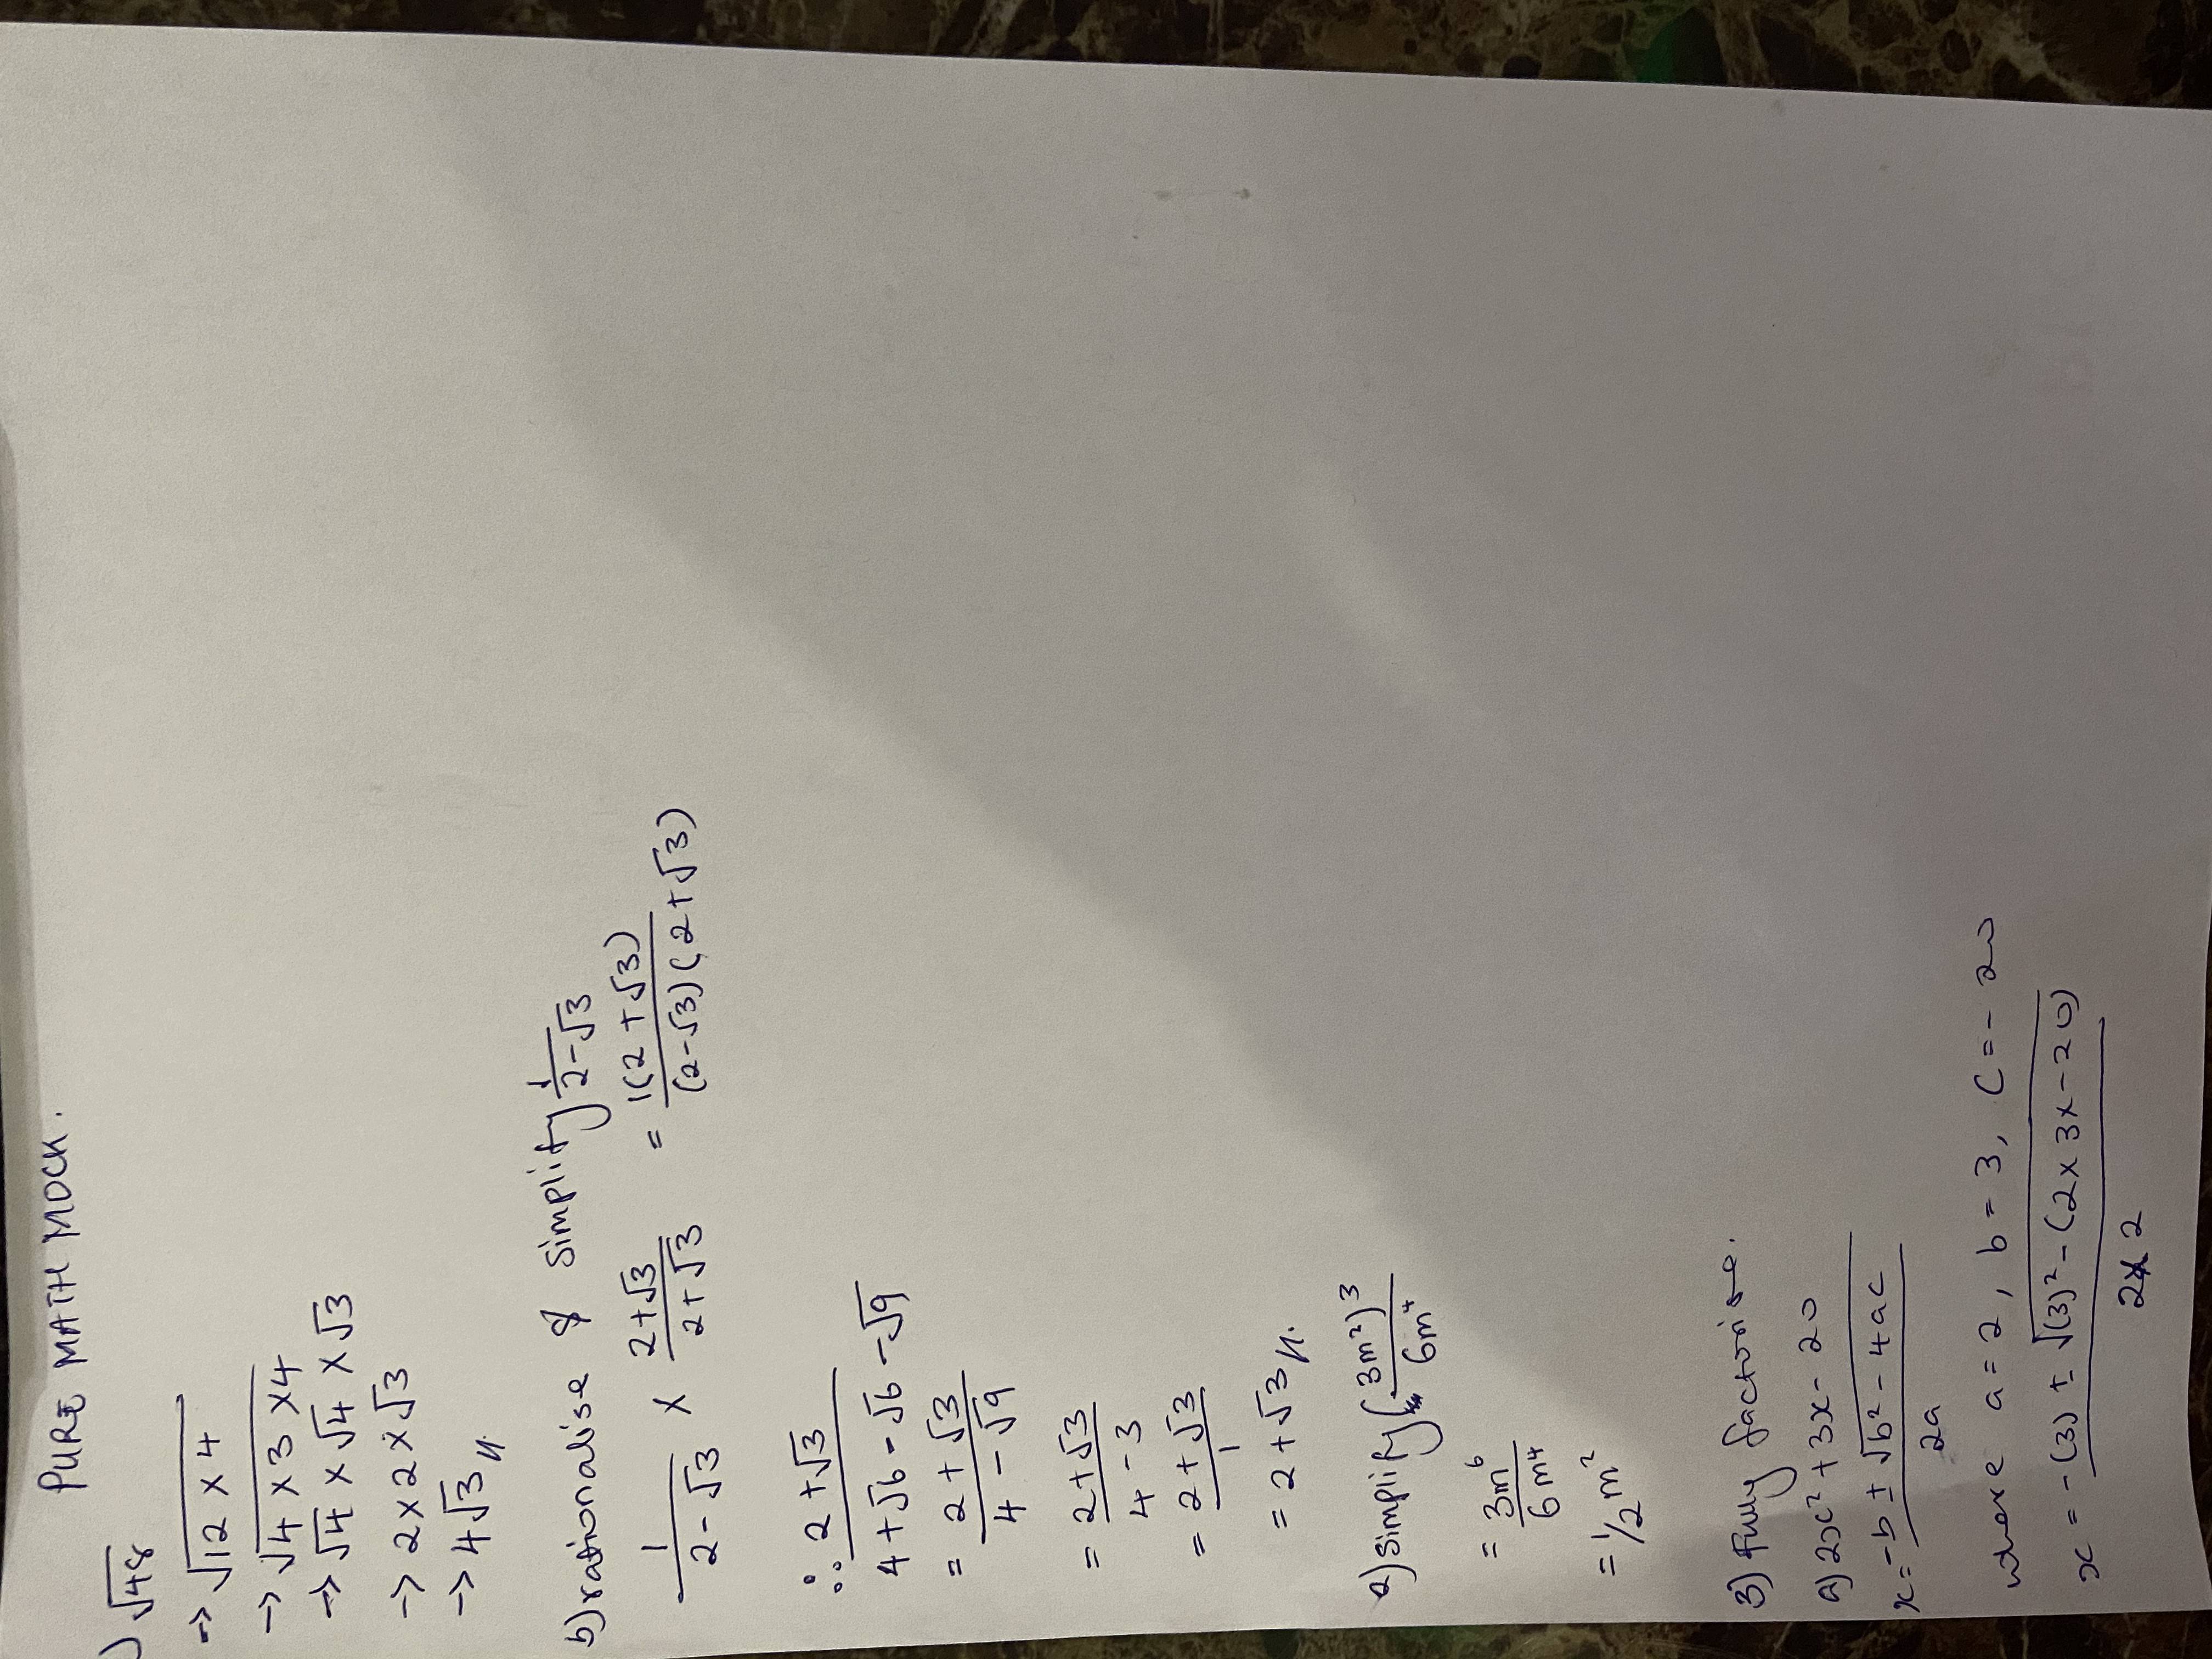 PURE MATH MOCK.
) √48
→ √12 × 4
→ √4 × 3 × 4
→ √4 × √4 × √3
→ 2 × 2 × √3
→ 4√3 //.
b) rationalise & simplify 1/2-√3
1/2-√3 × 2+√3/2+√3 = 1(2+√3)/(2-√3)(2+√3)
∴ 2+√3
4+√6-√6-√9
= 2+√3
4-√9
= 2+√3
4-3
= 2+√3
1
= 2+√3 //.
2) simplify (3m²)³
6m⁴
= 3m⁶
6m⁴
= 1/2 m²
3) Fully factorise.
a) 2x² + 3x - 20
x = -b ± √b² - 4ac
2a
where a = 2, b = 3, C = - 20
x = -(3) ± √(3)² - (2 × 3 × -20)
2 × 2